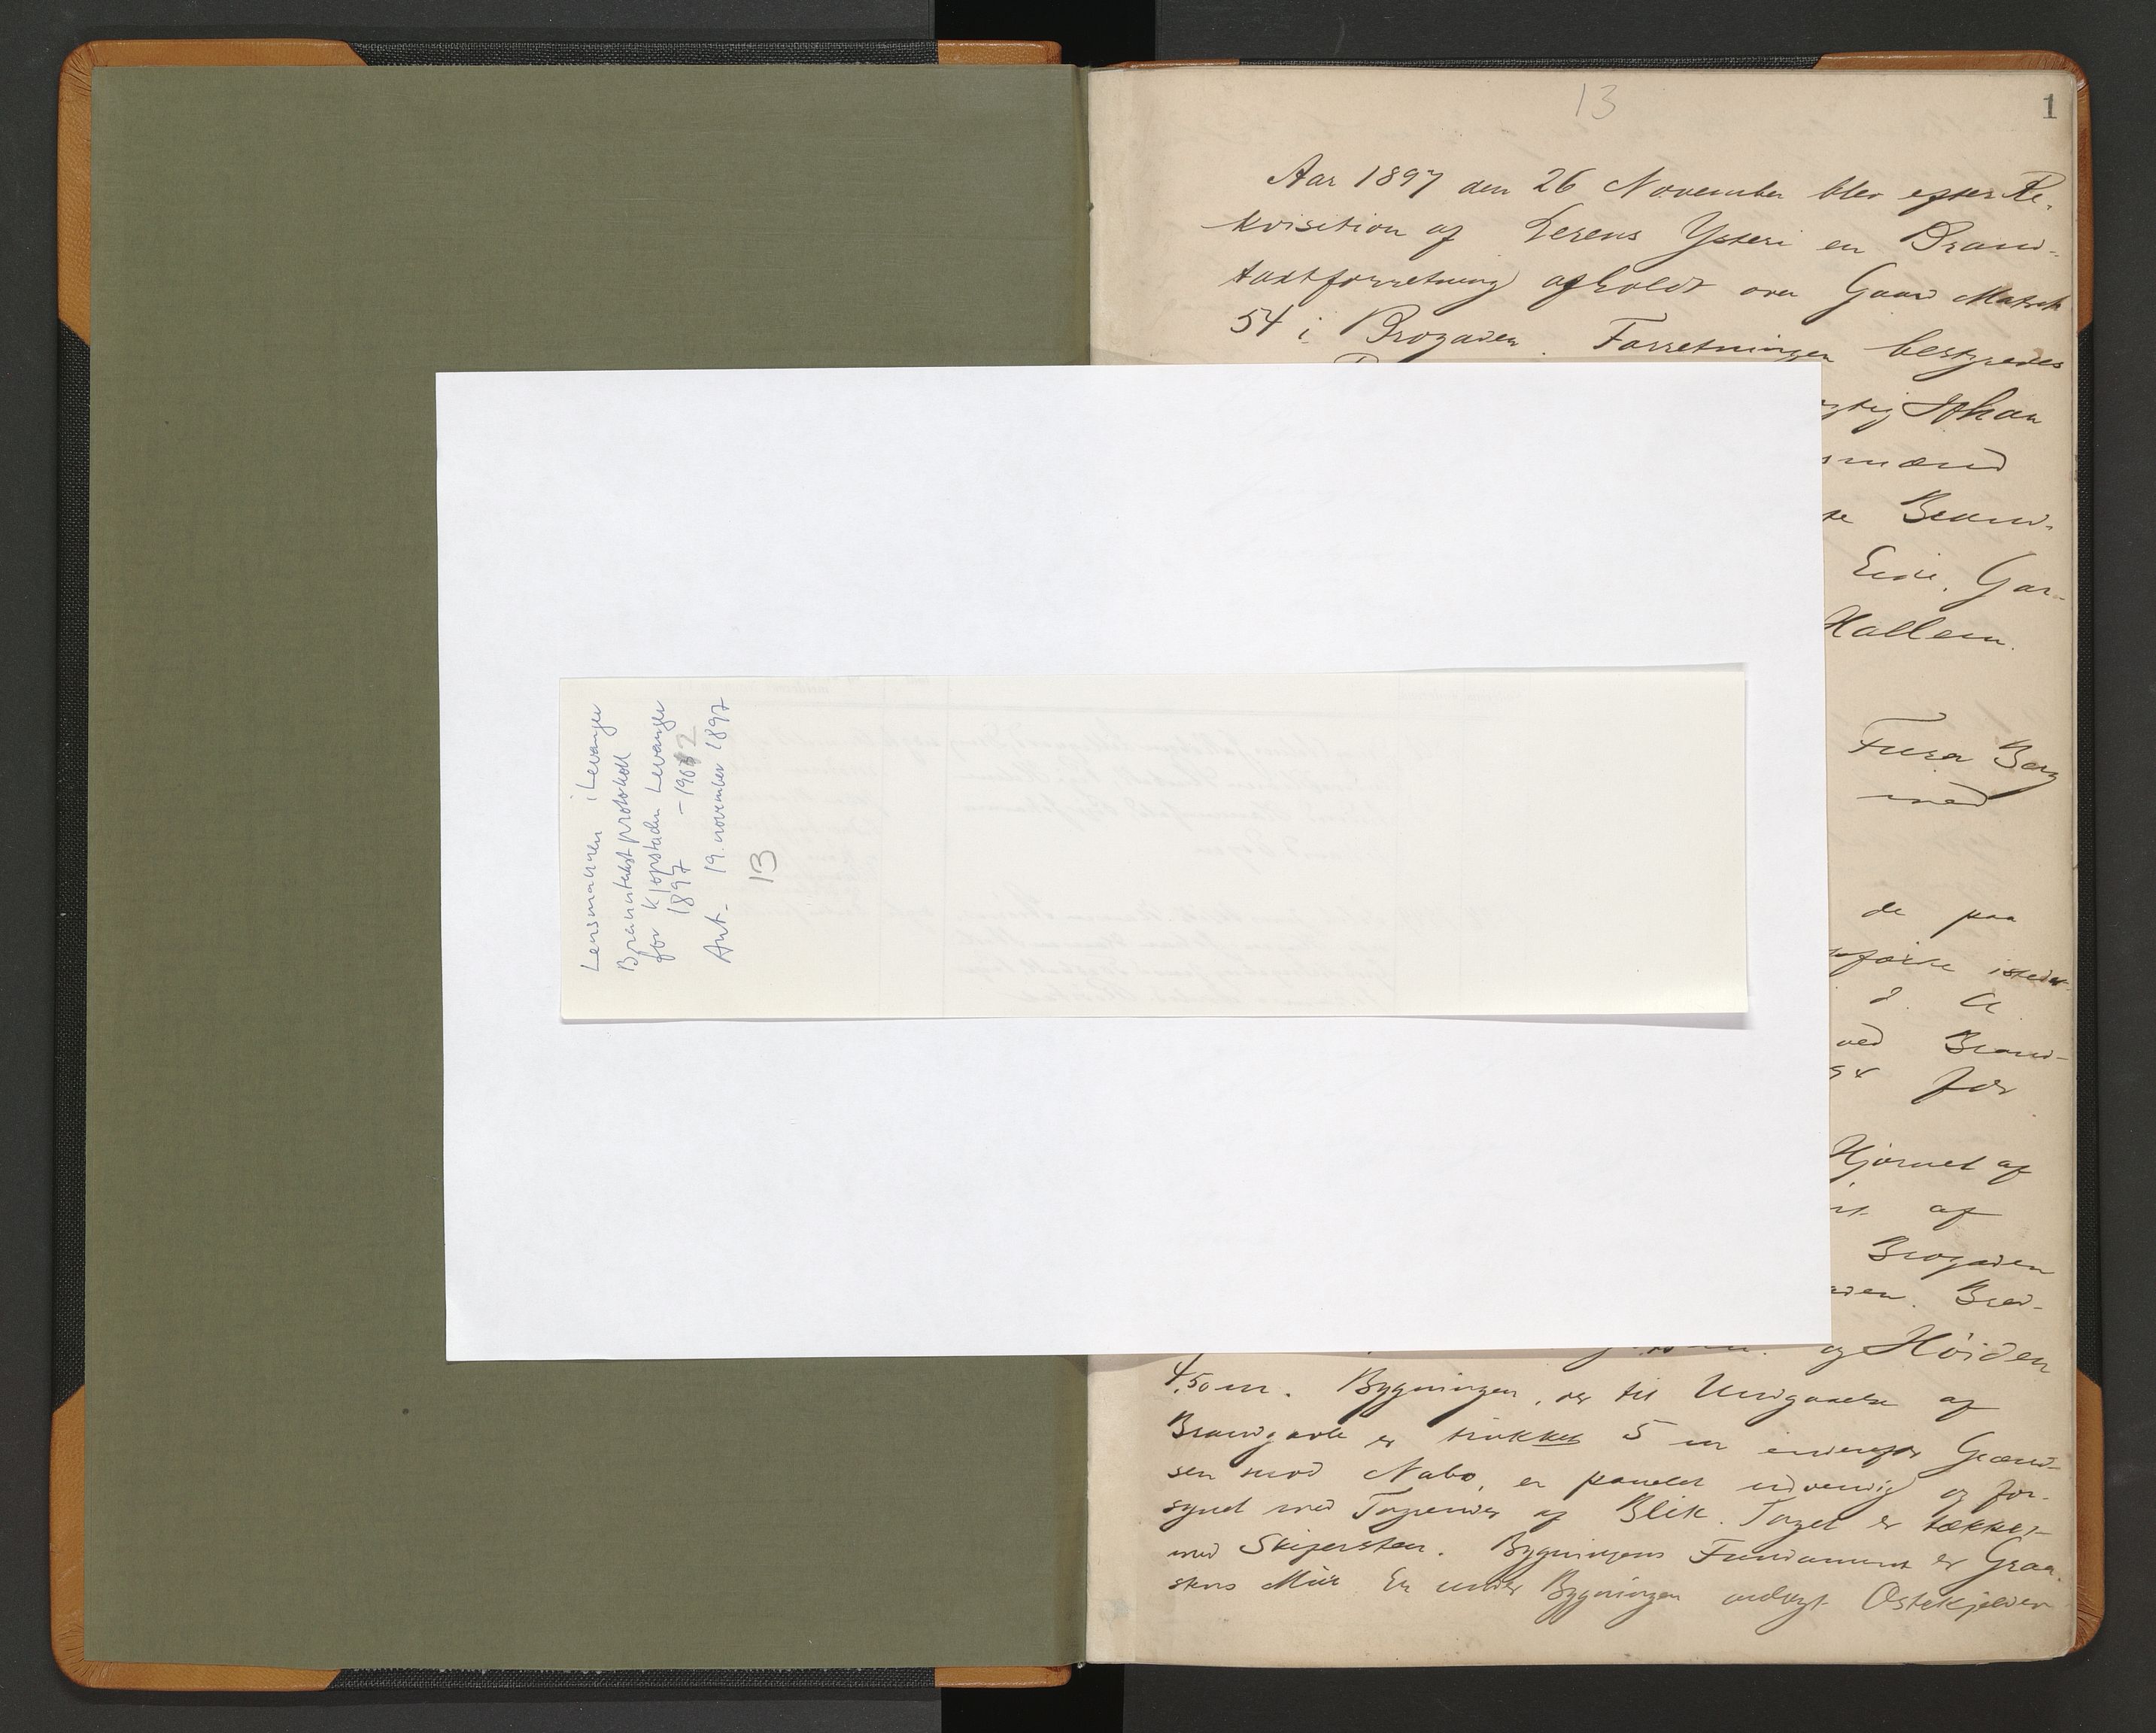 Lensmannen i Levanger
Branntakstprotokoll
for kjøpstaden Levanger
1897 - 1902
Aut. 19. november 1897
13
13
1
Aar 1897 den 26 November blev efter Re-
kvisition af Ysteri en Brand-
taxtforretning afholdt over Gaard Matrik
54 i Brogaden. Forretningen bestyredes
Johan
smænd
Brand-
Gar-
Hallem.
Fusa Berg
med
de paa
istedet
ved Brand-
for
Hjørnet af
af
Brogaden
Bred-
og Høiden
4,50 m. Bygningen, der til Undgaaelse af
Brandgavle er trukket 5 m indenfor Grænd-
sen mod Nabo, er panelet udvendig og for-
synet med Tagrender af Blik. Taget er tækket
med Skifersten. Bygningens Fundament er Graa-
stens Mur. En under Bygningen anlagt Ostekjelder